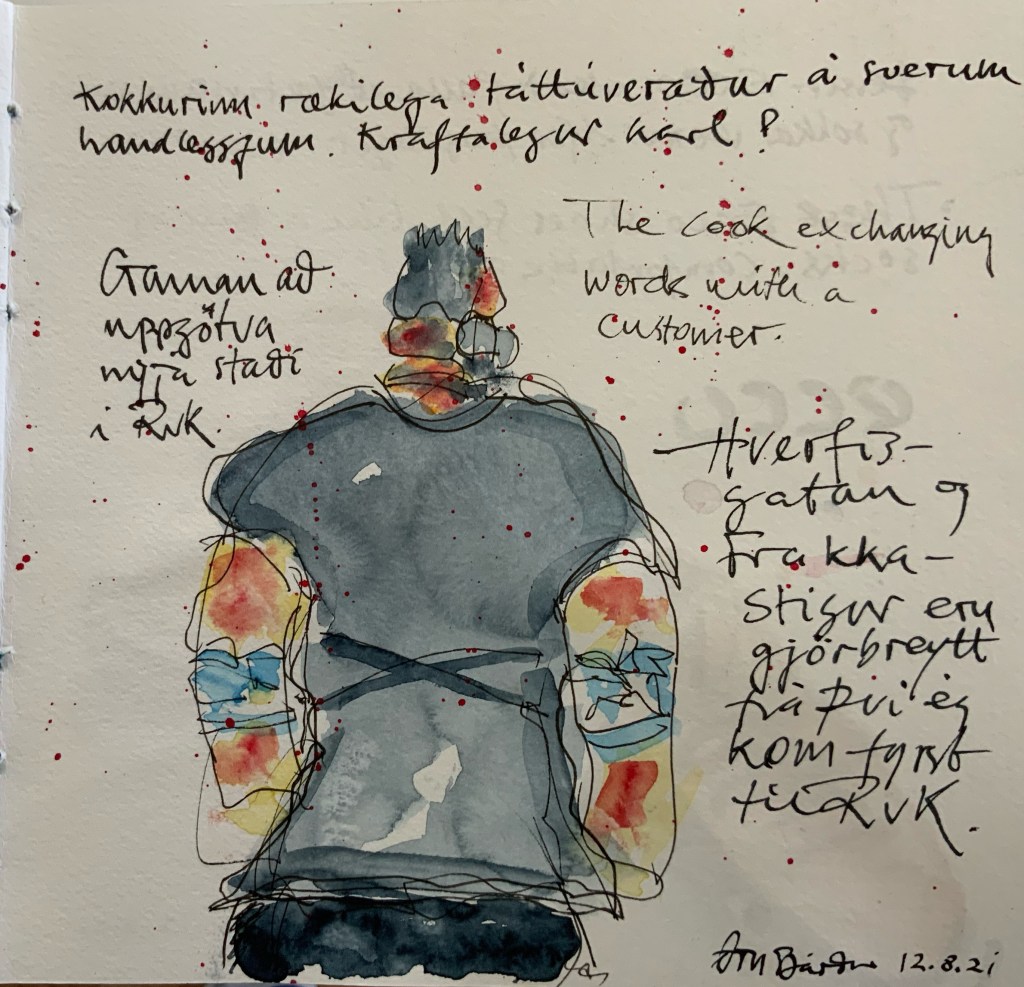 Kokkurinn rækilega táttúveraður á sverum
handleggjum. Kraftalegur karl!
Gaman að
uppgötva
nýja staði
í RvK.
The cook exchanging
words with a
customer.
Hverfis-
gatan og
Frakka-
stígur eru
gjörbreytt
frá því ég
kom fyrst
til RvK.
12.8.21